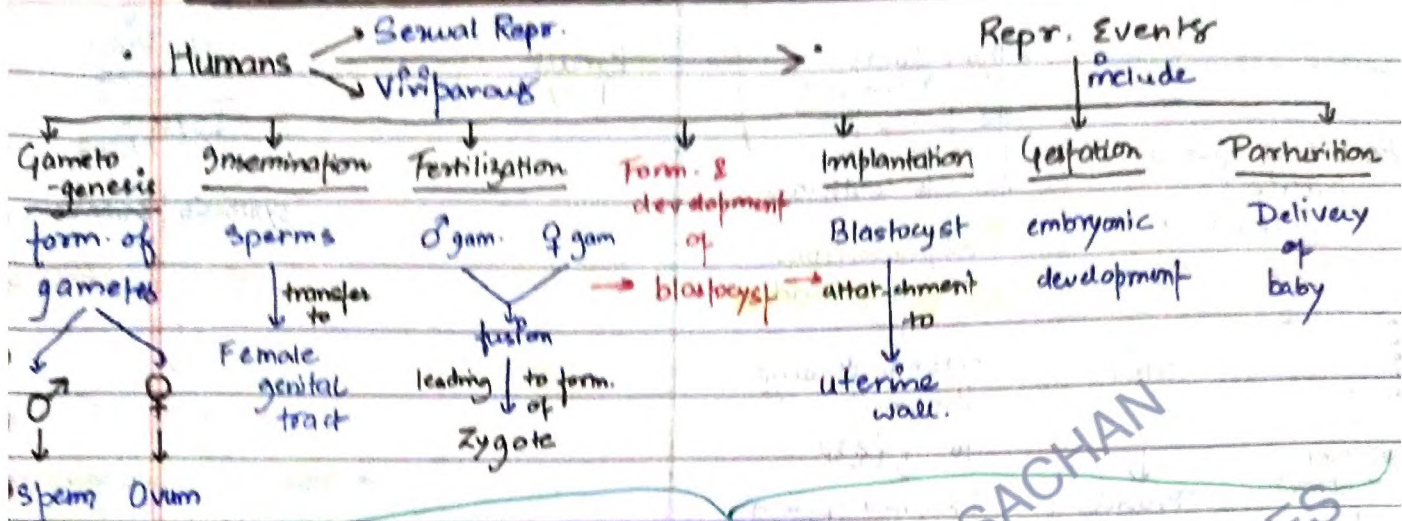 • Humans
Sexual Repr.
Viviparous
• Repr. Events
include
Gameto
-genesis
form. of
gametes
♂ ♀
Sperm Ovum
Insemination
sperms
transfer
to
Female
genital
tract
Fertilization
♂ gam. ♀ gam
fusion
leading to form.
of
Zygote
Form. &
development
of
→ blastocyst →
Implantation
Blastocyst
attachment
to
uterine
wall.
Gestation
embryonic
development
Parturition
Delivery
of
baby
SACHAN